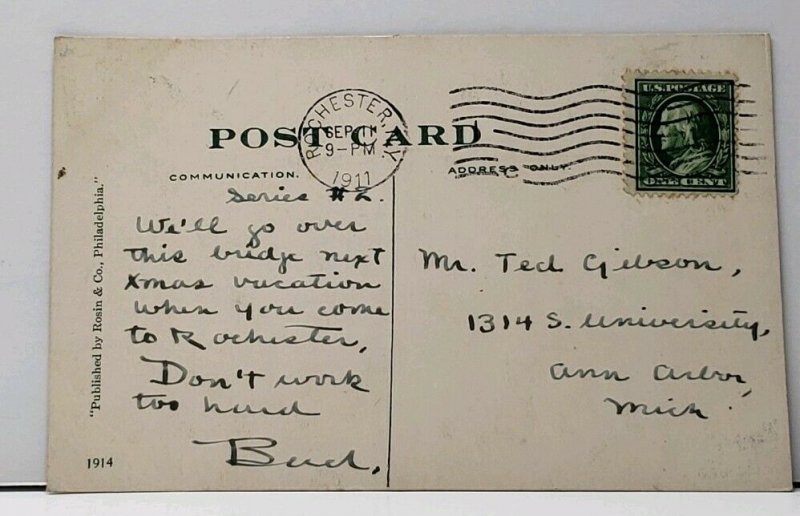 POST CARD
ROCHESTER, N.Y.
SEP 11
9-PM
1911
U.S. POSTAGE
ONE CENT
COMMUNICATION.
ADDRESS ONLY.
Series #2.
We'll go over
this bridge next
Xmas vacation
when you come
to Rochester,
Don't work
too hard
Bud,
Mr. Ted Gibson,
1314 S. University,
Ann Arbor,
Mich.
"Published by Rosin & Co., Philadelphia."
1914